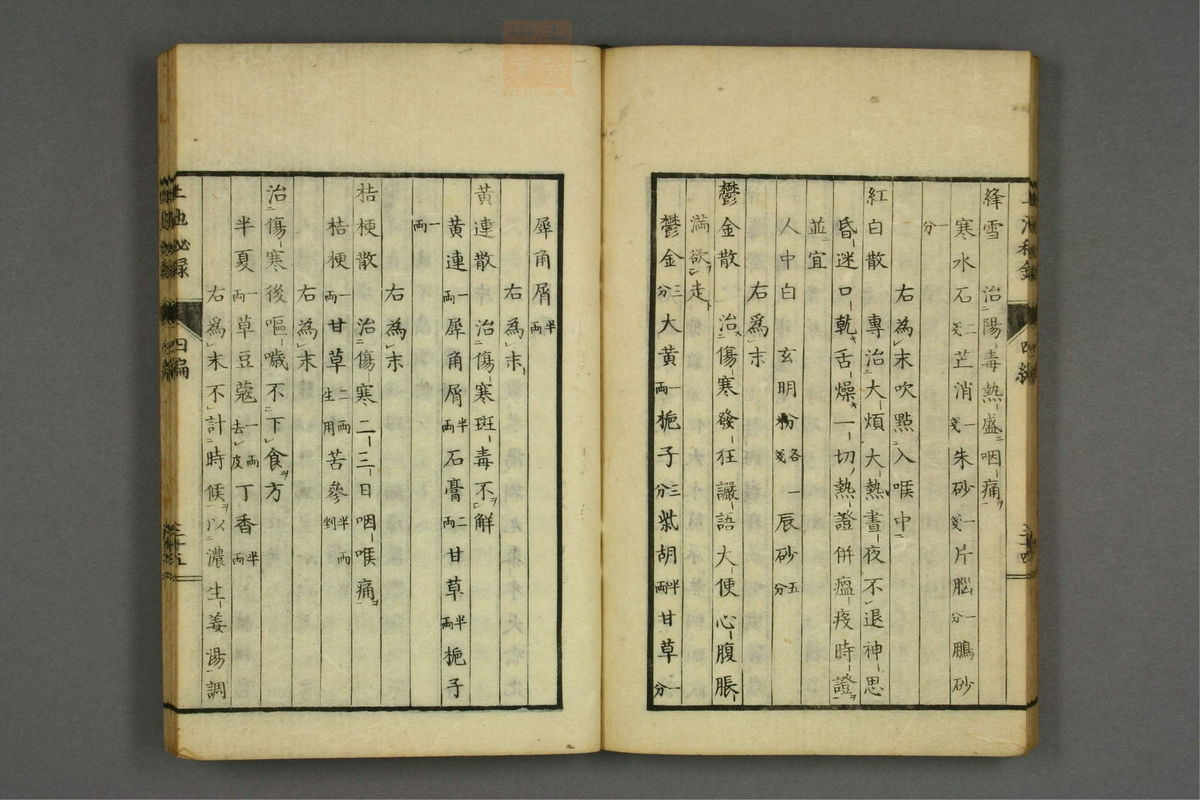 絳雪　治陽毒熱盛咽痛ヲ
寒水石二戔芒消一戔朱砂一戔片腦一分鵬砂
一分
右為末吹點入喉中
紅白散　專治大煩大熱晝夜不退神思
昏迷口乾舌燥一切熱證併瘟疫時證ヲ
並宜
人中白　玄明粉各一戔　辰砂五分
右為末
鬱金散　治傷寒發狂讝語大便心腹脹
満欲ヲ走
鬱金三分大黄一両梔子三分柴胡半両甘草一分
犀角屑半両
右為末
黄連散　治傷寒斑毒不ヲ解
黄連一両犀角屑半両石膏二両甘草半両梔子
一両
右為末
桔梗散　治傷寒二三日咽喉痛ヲ
桔梗一両甘草二両生用苦參半両剉
右為末
治傷寒後嘔噦不下食ヲ方
半夏一両草豆蔲一両去皮丁香半両
右為末不計時候以ヲ濃生姜湯調
四編
三十四
四編
三十五